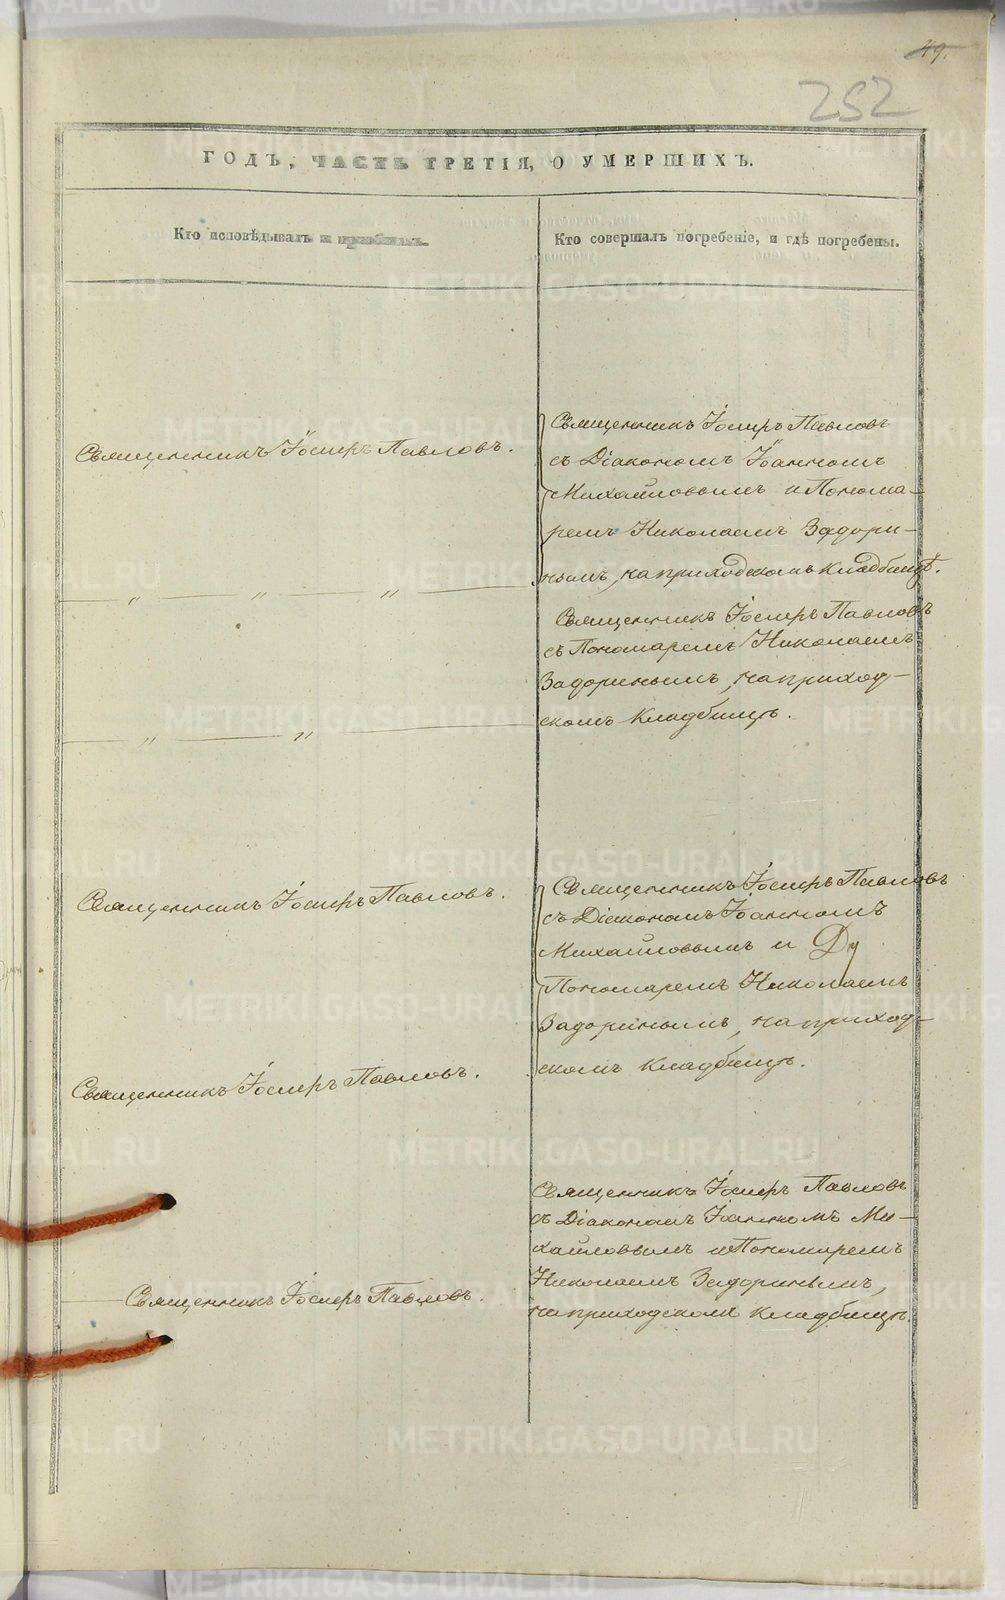 49.
252
ГОДЪ, ЧАСТЬ ТРЕТІЯ, О УМЕРШИХЪ.
Кто исповѣдывалъ и пріобщалъ.
Кто совершалъ погребеніе, и гдѣ погребены.
Священникъ Іосифъ Павловъ.
Священникъ Іосифъ Павловъ
съ Діакономъ Іоанномъ
Михайловымъ и Понома-
ремъ Николаемъ Задори-
нымъ, на приходскомъ кладбищѣ.
— „ — „ — „ —
Священникъ Іосифъ Павловъ
съ Пономаремъ Николаемъ
Задоринымъ, на приход-
скомъ кладбищѣ.
— „ — „ —
Священникъ Іосифъ Павловъ.
Священникъ Іосифъ Павловъ
съ Діакономъ Іоанномъ
Михайловымъ и Ду
Пономаремъ Николаемъ
Задоринымъ, на приход-
скомъ кладбищѣ.
Священникъ Іосифъ Павловъ.
Священникъ Іосифъ Павловъ
съ Діакономъ Іоанномъ Ми-
хайловымъ и Пономаремъ
Николаемъ Задоринымъ,
на приходскомъ кладбищѣ.
Священникъ Іосифъ Павловъ.
METRIKI.GASO-URAL.RU